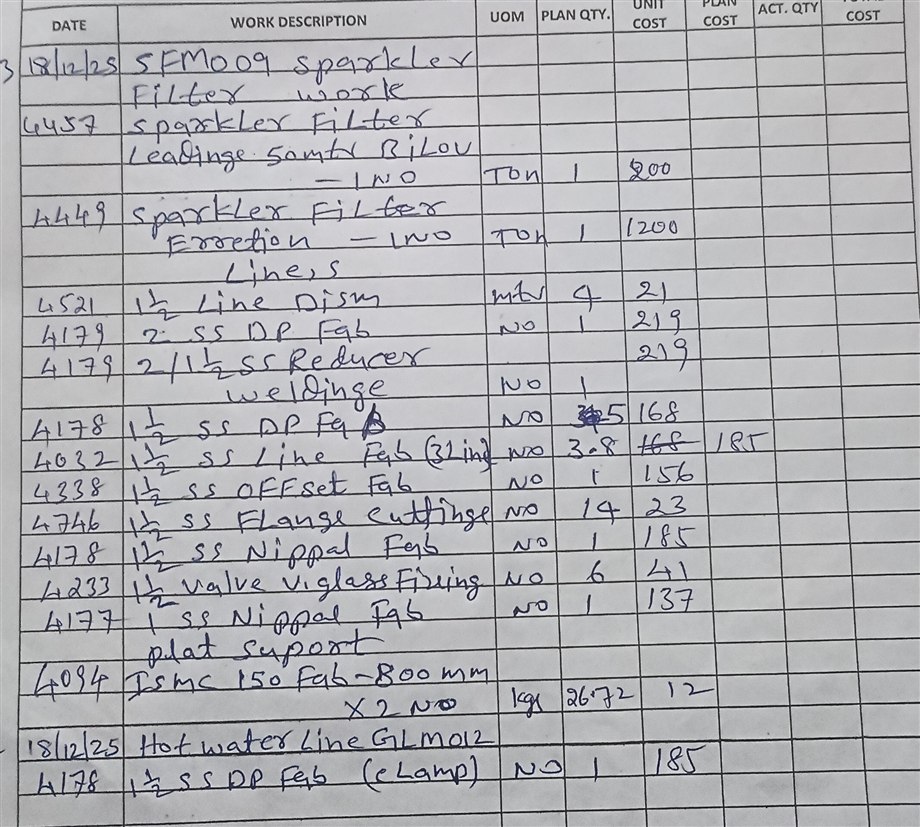 DATE WORK DESCRIPTION UOM PLAN QTY. UNIT COST PLAN COST ACT. QTY COST
3 18/12/25 SFM009 Sparkler
Filter work
4457 Sparkler Filter
Leadinge 50mtr Bilou
- 1 NO Ton 1 200
4449 Sparkler Filter
Erretion - 1NO Ton 1 1200
Line,s
4521 1½ Line Dism mtr 4 21
4179 2 SS DP Fab NO 1 219
4179 2/1½ SS Reducer 219
weldinge NO 1
4178 1½ SS DP Fab NO 5 168
4032 1½ SS Line Fab (3Line) NO 3.8 168 185
4338 1½ SS OFFset Fab NO 1 156
4746 1½ SS FLange cuttinge NO 14 23
4178 1½ SS Nippal Fab NO 1 185
4233 1½ valve v.glass Fixing NO 6 41
4177 1 SS Nippal Fab NO 1 137
plat suport
4094 ISMC 150 Fab-800mm
X 2 NO kgs 26.72 12
18/12/25 Hot water Line GLM012
4178 1½ SS DP Fab (cLamp) NO 1 185